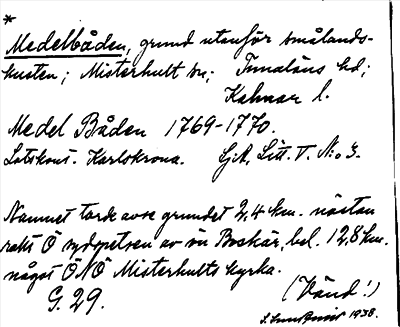 *
Medelbåden, grund utanför smålands-
kusten; Misterhult sn; Tunaläns hd;
Kalmar l.
Medel Båden 1769-1770.
Lotskont. Karlskrona. Sj.A, Litt. V. N:o 3.
Namnet torde avse grundet 2,4 km. nästan
rakt Ö sydspetsen av ön Boskär, bel. 12,8 km.
något ÖNÖ Misterhults kyrka.
G. 29. (Vänd!)
1938.